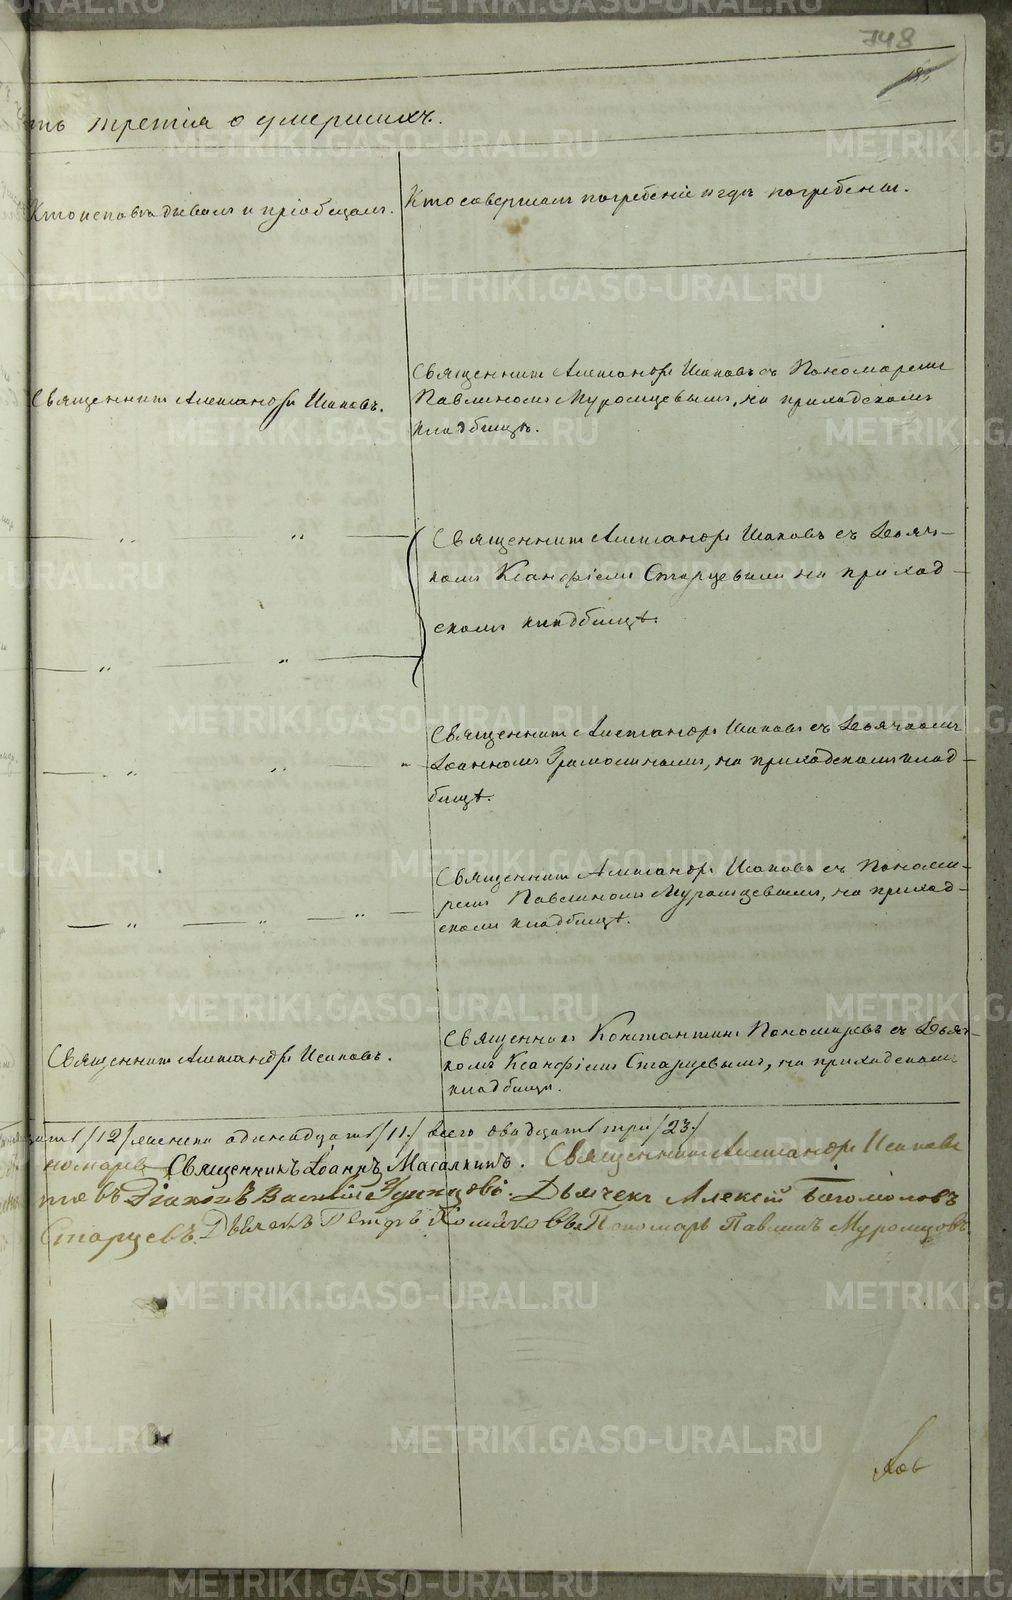 748
ть третія о умершихъ.
Кто исповѣдывалъ и пріобщалъ.
Кто совершалъ погребеніе и гдѣ погребены.
Священникъ Александръ Исаковъ.
Священникъ Александръ Исаковъ съ Пономаремъ
Павлиномъ Муромцевымъ, на приходскомъ
кладбищѣ.
Священникъ Александръ Исаковъ съ Дьяч-
комъ Ксанфіемъ Старцевымъ на приход-
скомъ кладбищѣ.
Священникъ Александръ Исаковъ съ Дьячкомъ
Іоанномъ на приходскомъ клад-
бищѣ.
Священникъ Александръ Исаковъ съ Понома-
ремъ Павлиномъ Муромцевымъ, на приход-
скомъ кладбищѣ.
Священникъ Александръ Исаковъ.
Священникъ Константинъ Пономаревъ съ Дьяч-
комъ Ксанфіемъ Старцевымъ, на приходскомъ
кладбищѣ.
/12/ женска одинадцать /11./ Всего двадцать три /23./
номаревъ Священникъ Іоаннъ Масалкинъ. Священникъ Александръ Исаковъ
Діаконъ Василій Дьячекъ Алексій Богомоловъ
Старцевъ. Дьячекъ Петръ Хомяковъ Пономарь Павлинъ Муромцовъ.
METRIKI.GASO-URAL.RU